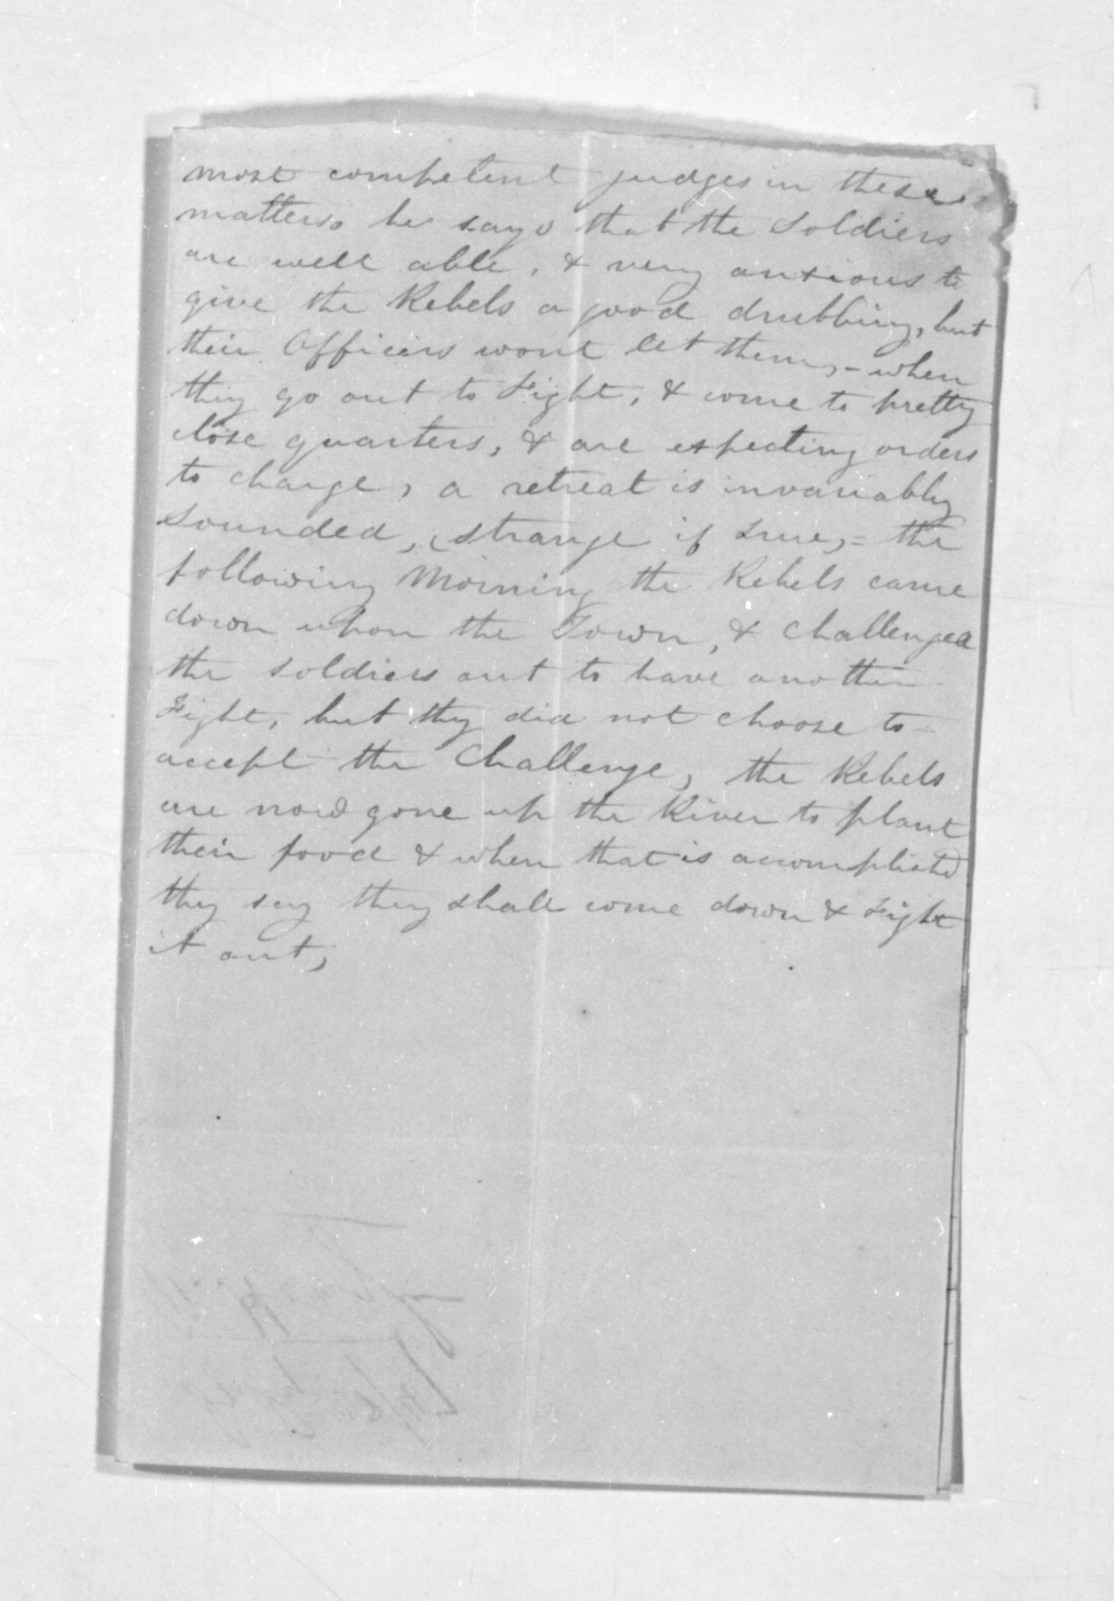 most competent judges in these
matters, he says that the Soldiers
are well able, & very anxious to
give the Rebels a good drubbing, but
their Officers wont let them, - when
they go out to Fight, & come to pretty
close quarters, & are expecting orders
to charge, a retreat is invariably
sounded, strange if true, = the
following Morning the Rebels came
down upon the Town, & challenged
the soldiers out to have another
Fight, but they did not choose to
accept the Challenge, the Rebels
are now gone up the River to plant
their food & when that is accomplishd
they say they shall come down & Fight
it out,